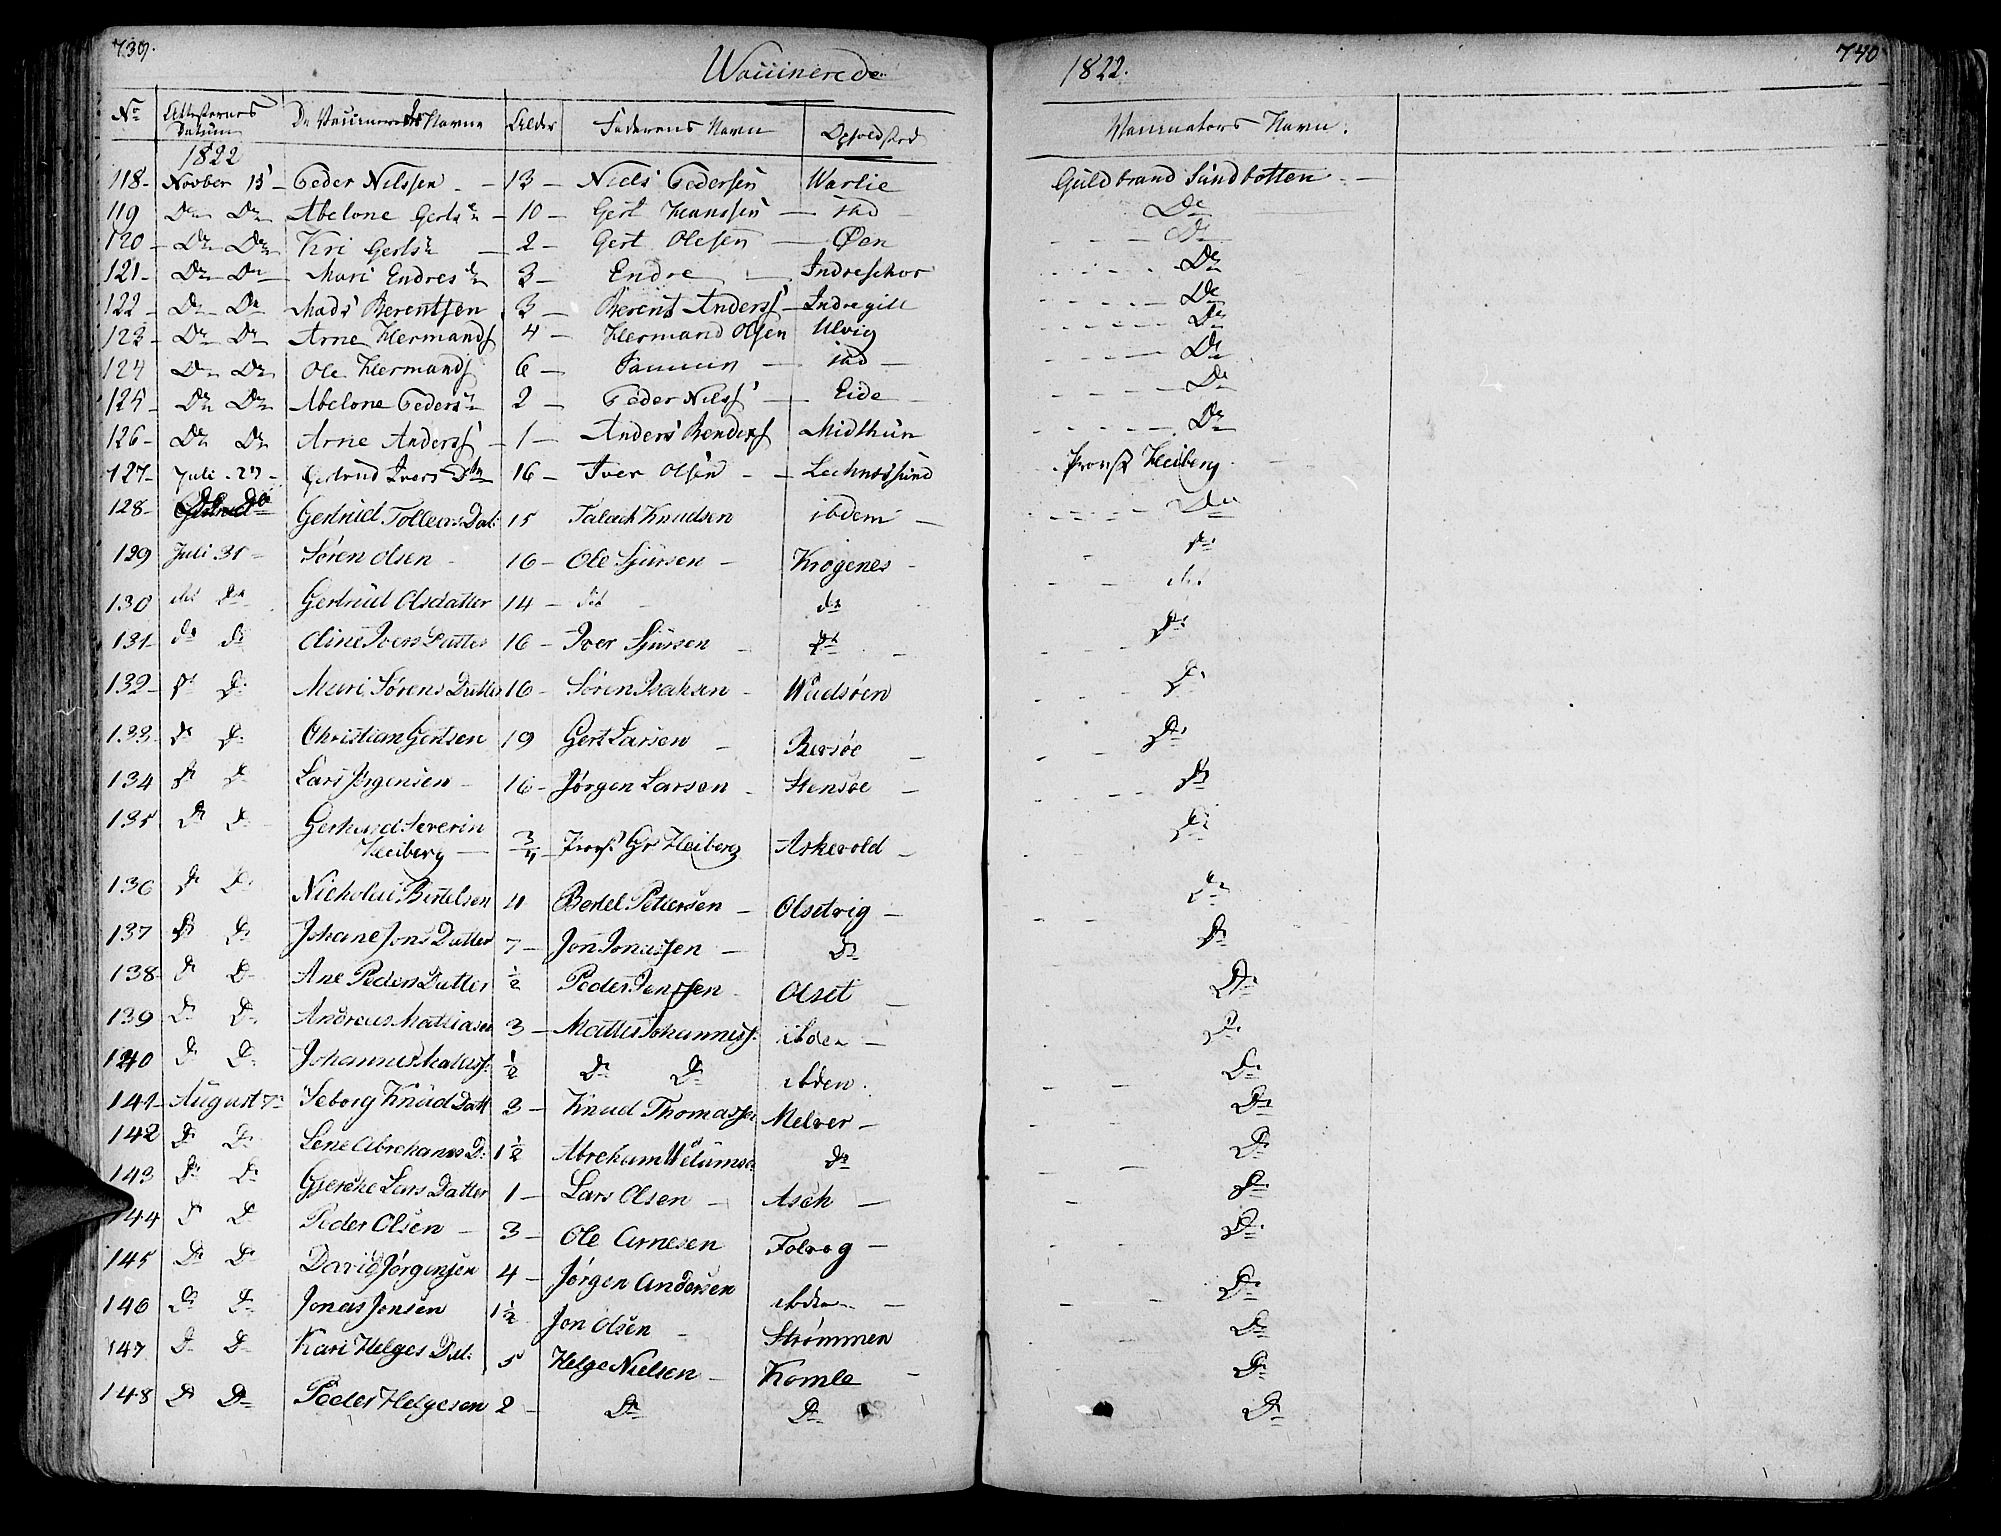 739.
Vaccinerede
1822.
740
No Attesternes Datum De Vaccineredes Navne Alder Faderens Navn Opholdsted Vaccinators Navn.
1822
118 - Novber 15 - Peder Nilssen - 13 - Niels Pedersen Warlie Guldbrand Sundbotten -
119 Do Do Abelone Gertsdn - 10 - Gert Hanssen - ibd - Do
120 - Do Do Kri Gertsdn - 2 - Gert Olesen - Øen Do
121 - Do Do Mari Endresdn 3 - Endre - Indreschor Do
122 - Do Do Mads Berentsen 3 - Berent Anderss - Indregill Do
123 - Do Do Arne Hermands 4 - Hermand Olsen Ulvig Do
124 Do Do Ole Hermands 6 - Sammen - ibd - Do
125 - Do Do Abelone Pedersdn 2 - Peder Nilss - Eide - Do
126 - Do Do Arne Anderss - 1 - Anders Bendixs Midthun Do
127 - Juli - 27 - Gertrud Ivers Dtn 16 - Iver Olsen - Lechnessund Provst Heiberg
128 - Do Gertrud Tollevs Dat: 15 Knudsen ibdem - Do
129 Juli 31 - Søren Olsen - 16 - Ole Sjursen - Krogenes - do
130 dito do Gertrud Olsdatter 14 - dito - do dito
131 - do do Oline Ivers Datter 16 - Iver Sjursen - do - do
132 - do do Mari Sørens Datter 16 - Søren Isaksen - Wadsøen Do
133 - do do Christian Gertsen 19 Gert Larsen - Buesøe - Do
134 do D Lars Jørgensen - 16 - Jørgen Larsen - Stensøe - Do
135 do D Gerhard Severin
Heiberg - 3/4 - Provst Gr Heiberg Askevold - Do
136 do D Nicholai Bertelsen 4 Bertel Petersen - Olsetvig - Do
137 do D Johane Jons Datter 7 - Jon Jonassen - Do Do
138 - do D Ane Peders Datter 1/2 Peder Jenssen - Olset - Do
139 Do Do Andreas Mathiasen 3 - Mattis Johanness. ibden - Do
140 Do Do Johannes Matiess. 1/2 Do Do ibden. Do
141 - August 7de Seborg Knud Datt 3 - Knud Thomassen Melver - Do
142 Do Do Lene Abrehams D: 1 1/2 Abreham Welumsen do Do
143 Do Do Gjerthe Lars Datter 1 - Lars Olsen - Aseh - Do
144 Do Do Peder Olsen - 3 - Ole Arnesen Folvog - Do
145 Do Do David Jørgensen 4 - Jørgen Andersen ibden - Do
146 Do Do Jonas Jonsen 1 1/2 Jon Olsen - Strømmen Do
147 Do Do Kari Helges Dat: 5 Helge Nielsen - Komle - Do
148 Do Do Peder Helgesen 2 - Do Do Do